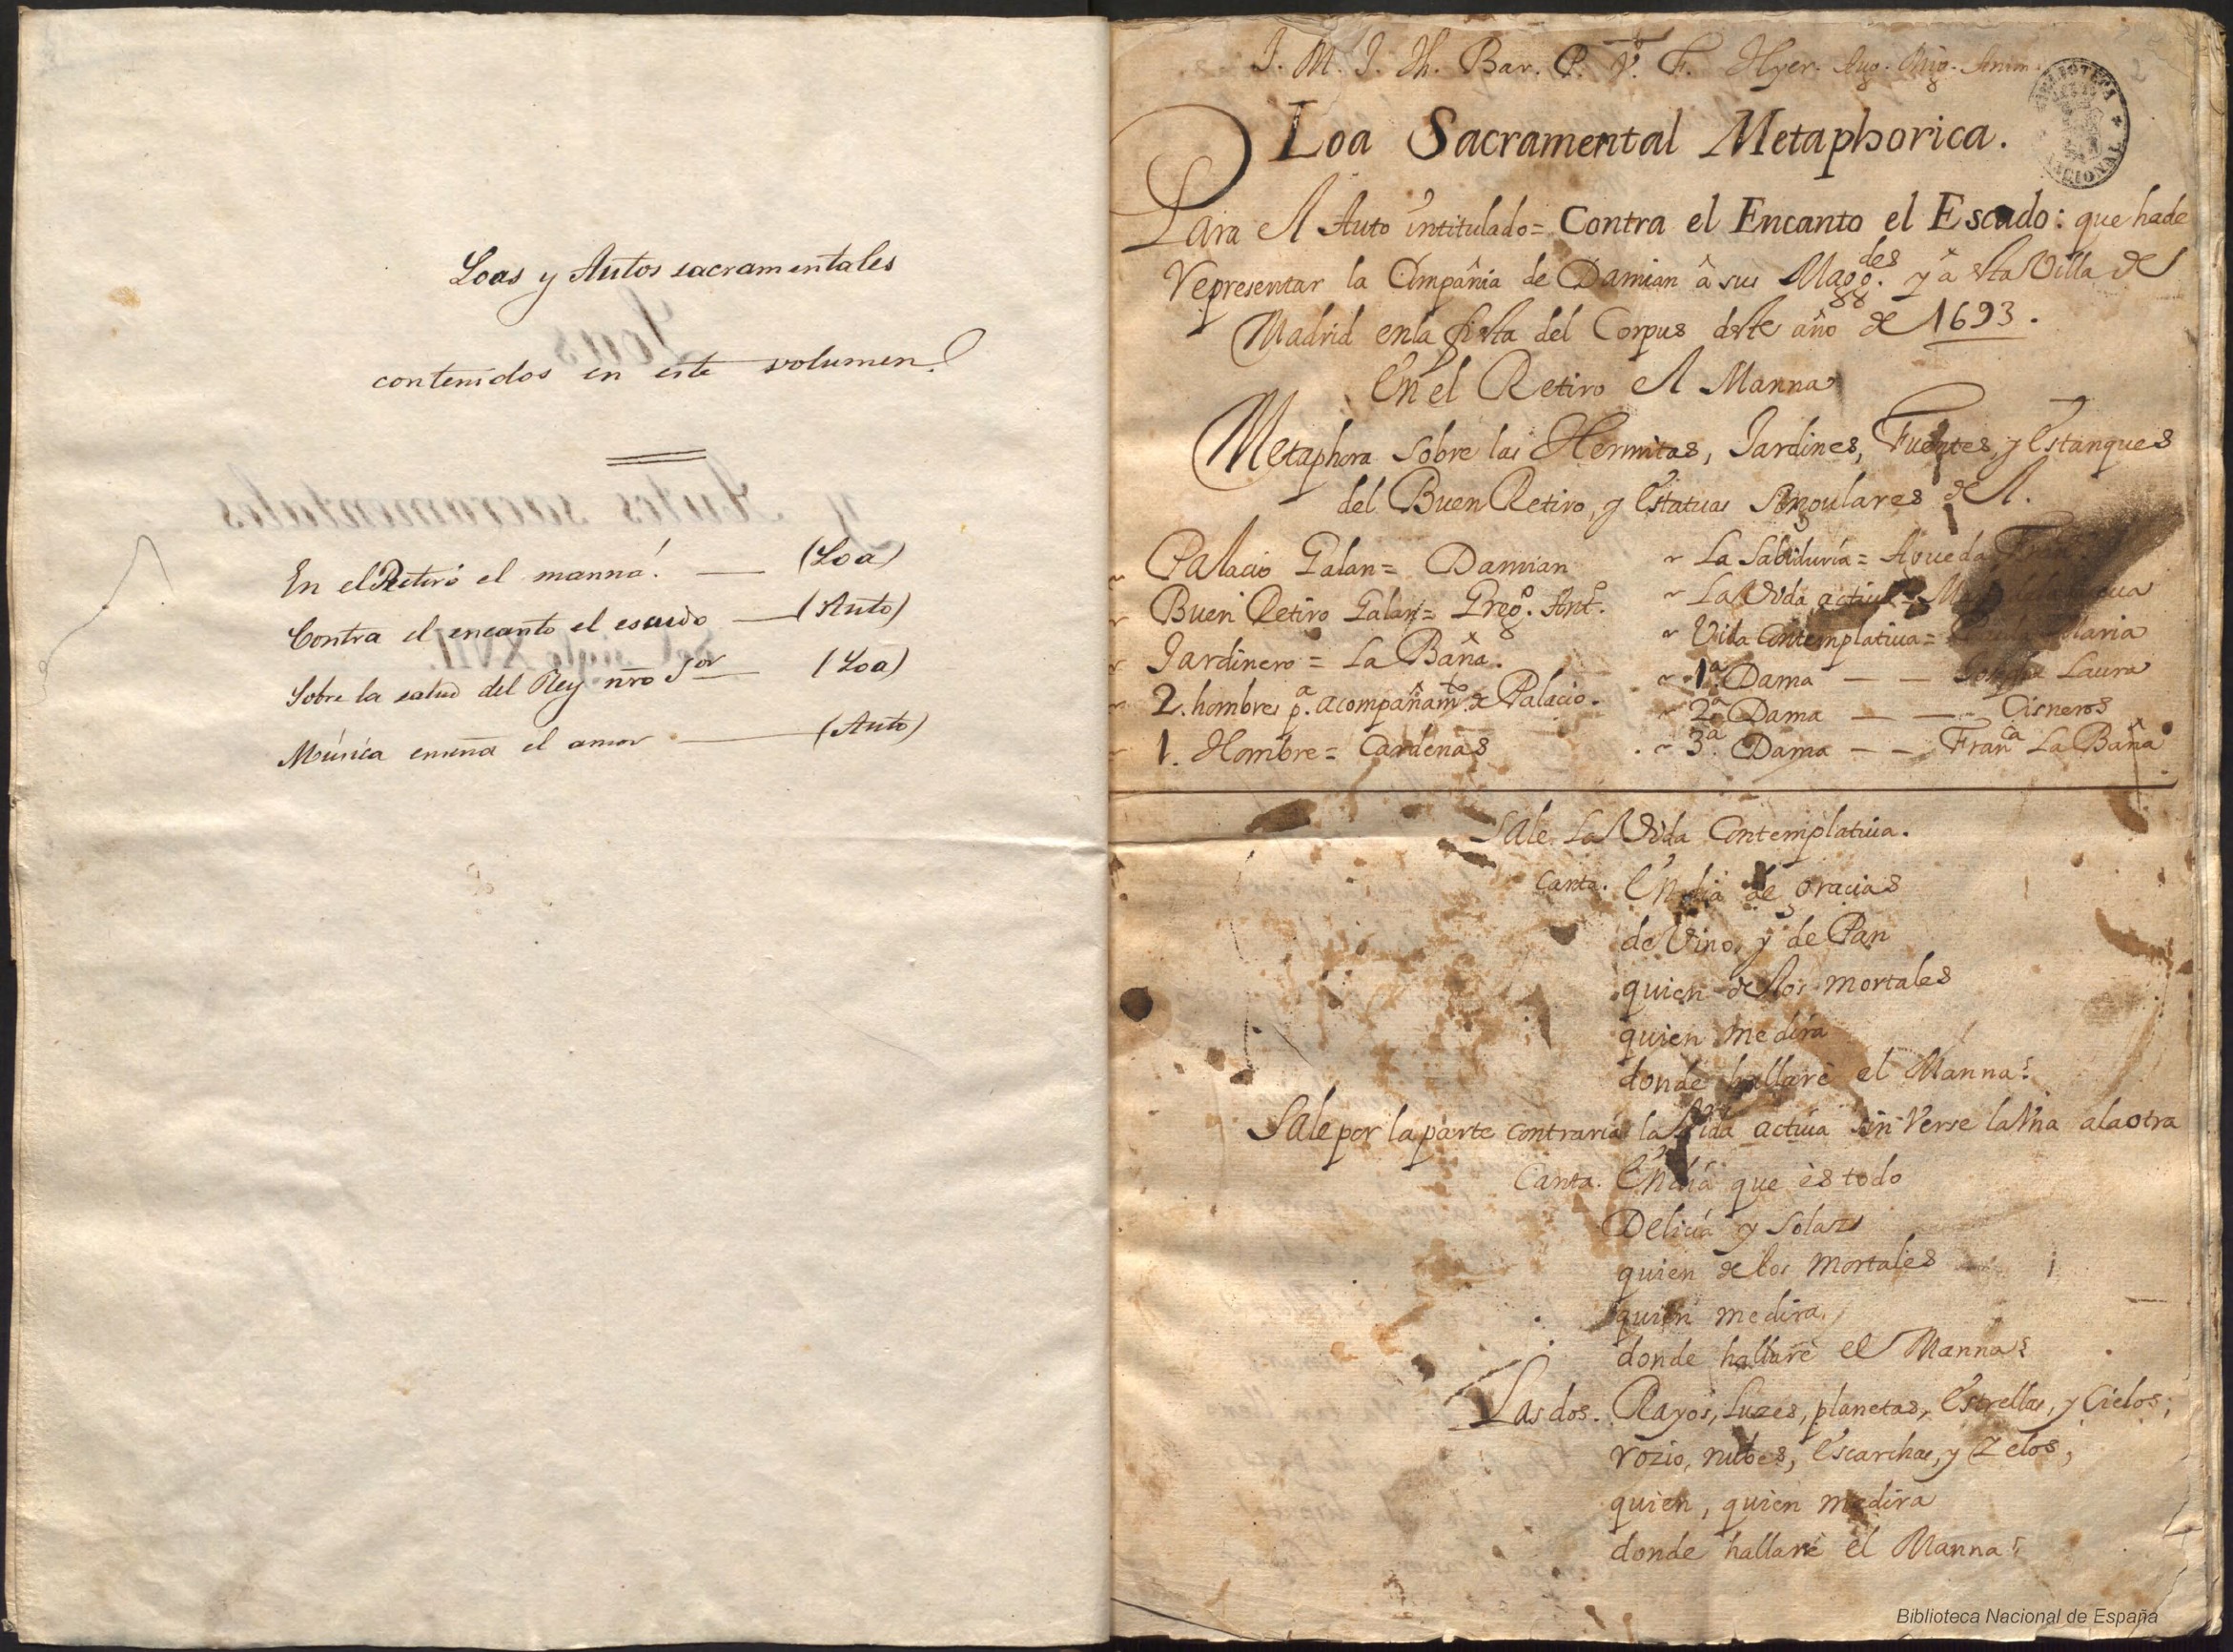 Loas y Autos sacramentales
contenidos en este volumen.
En el Retiro el manná. — (Loa)
Contra el encanto el escudo — (Auto)
Sobre la salud del Rey nro Sor — (Loa)
Música enseña el amor — (Auto)
J. M. J. Jh. Bar. P. V. F. Hyer. Aug. Mig. Anim.
Loa Sacramental Metaphorica.
Para el Auto intitulado = Contra el Encanto el Escudo: que hade
representar la Compañia de Damian â sus Magg.des y â esta Villa de
Madrid en la fiesta del Corpus deste año de 1693.
En el Retiro el Manna
Metaphora sobre las Hermitas, Jardines, Fuentes, y Estanques
del Buen Retiro, y Estatuas singulares de el.
Palacio Galan = Damian
Buen Retiro Galan = Greg.o Ant.o
Jardinero = La Baña.
2. hombres p.a acompañam.to de Palacio.
1. Hombre = Cardenas
La Sabiduría = Agueda
La Vida activa =
Vida Contemplativa = Hilaria
1.a Dama — — Laura
2.a Dama — — Cisneros
3.a Dama — — Fran.ca La Baña
Sale La Vida Contemplativa.
Canta. En dia de gracias
de Vino, y de Pan
quien de los mortales
quien me dira
donde hallarè el Manna?
Sale por la parte contraria la Vida activa sin verse la Vna a la otra
Canta. En dia que ès todo
Delicia y solaz
quien de los mortales
quien me dira
donde hallarè el Manna?
Las dos. Rayos, Luzes, planetas, Estrellas, y Cielos;
rozio, nubes, Escarchas, y Zelos,
quien, quien me dira
donde hallarè el Manna?
BIBLIOTECA NACIONAL
Biblioteca Nacional de España